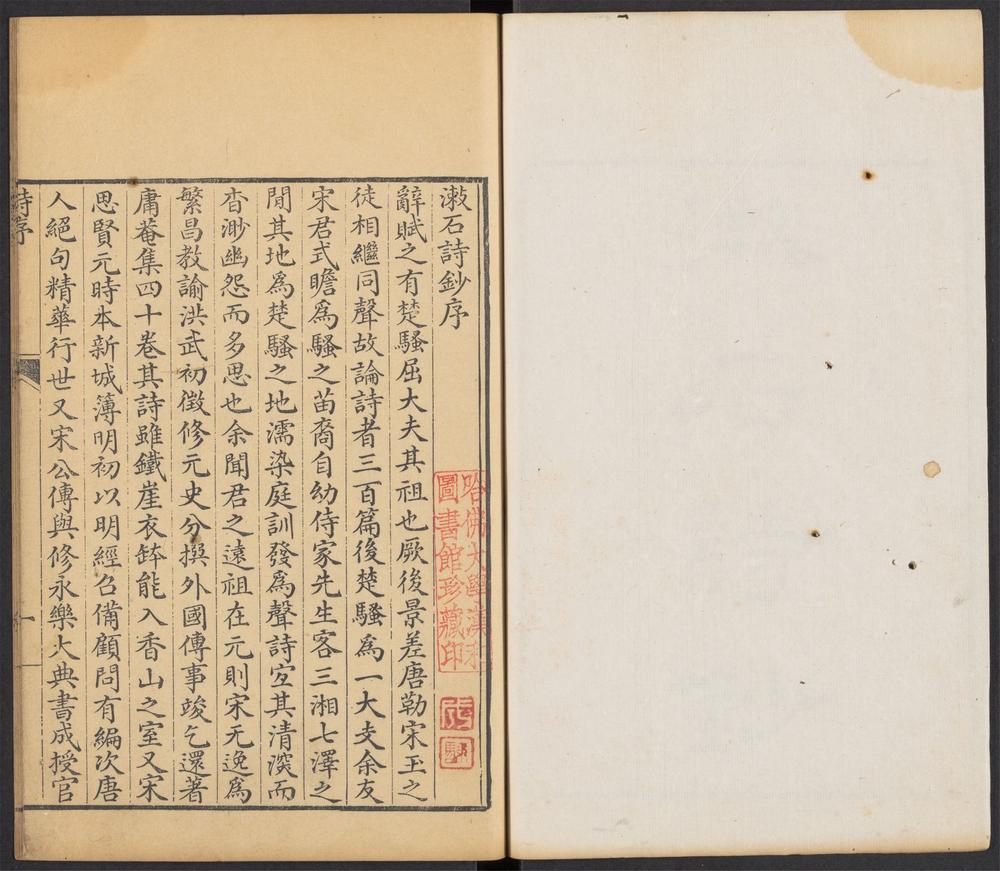 漱石詩鈔序
辭賦之有楚騷屈大夫其祖也厥後景差唐勒宋玉之
徒相繼同聲故論詩者三百篇後楚騷爲一大支余友
宋君式瞻爲騷之苗裔自幼侍家先生客三湘七澤之
間其地爲楚騷之地濡染庭訓發爲聲詩宜其清深而
杳渺幽怨而多思也余聞君之遠祖在元則宋无逸爲
繁昌教諭洪武初徵修元史分撰外國傳事竣乞還著
庸菴集四十卷其詩雖鐵崖衣缽能入香山之室又宋
思賢元時本新城簿明初以明經召備顧問有編次唐
人絕句精華行世又宋公傳與修永樂大典書成授官
詩序
一
哈佛大學漢和
圖書館珍藏印